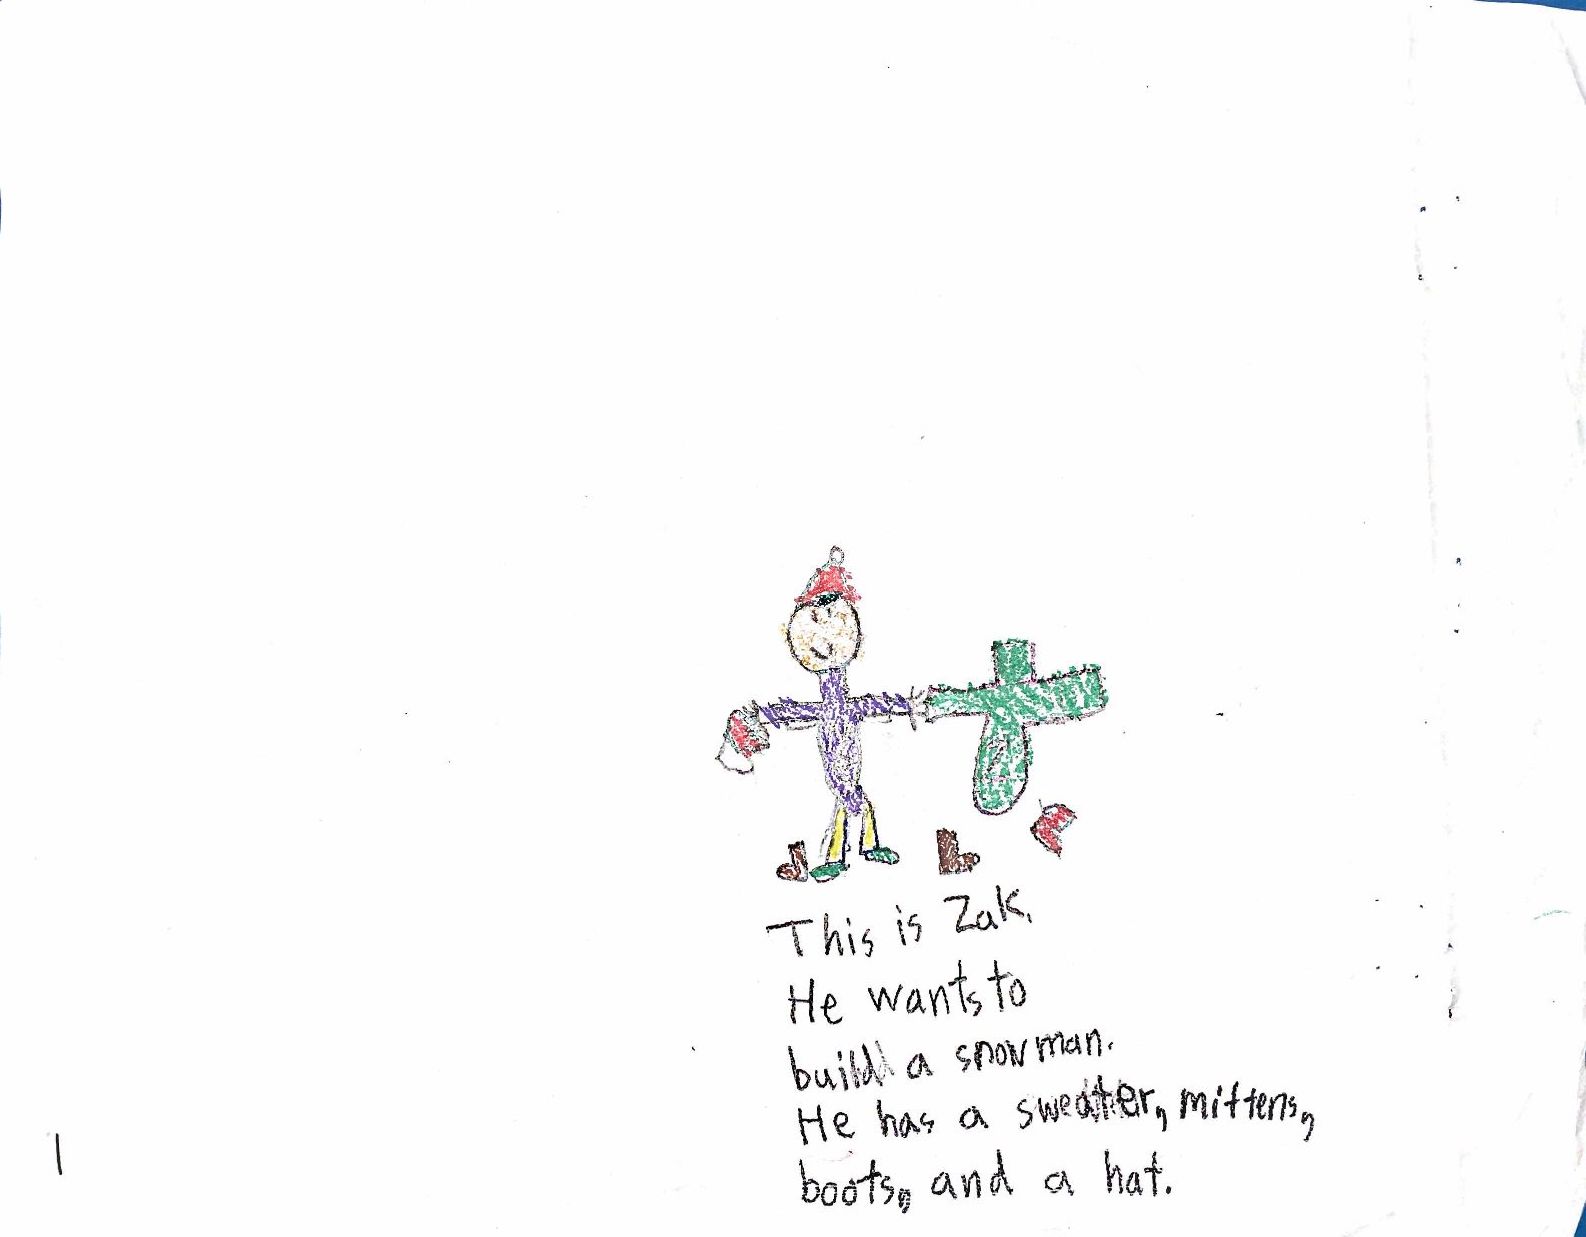 This is Zak.
He wants to
build a snowman.
He has a sweater, mittens,
boots, and a hat.
1